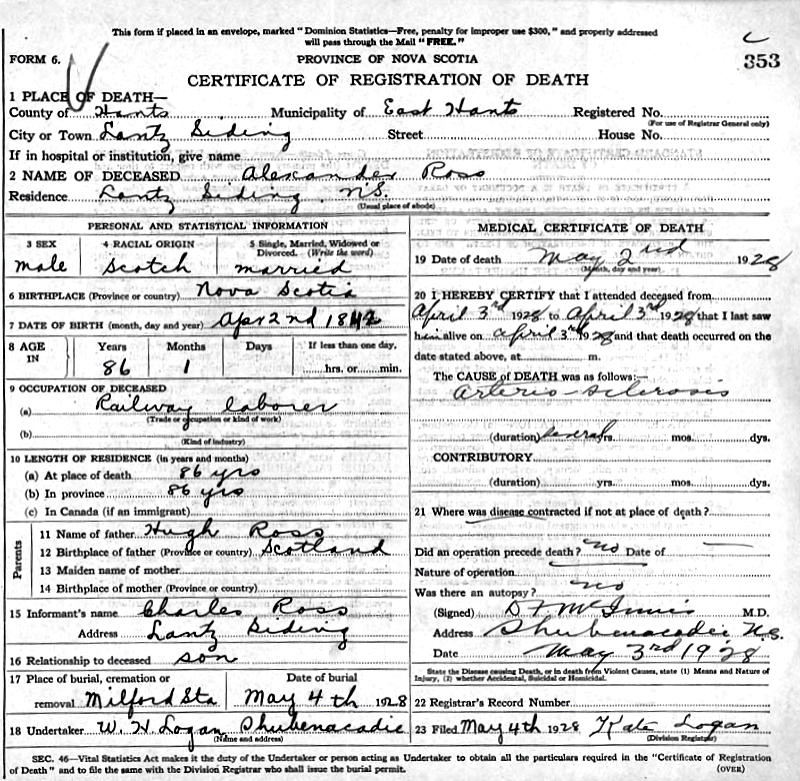 This form if placed in an envelope, marked "Dominion Statistics—Free, penalty for improper use $300," and properly addressed
will pass through the Mail "FREE."
FORM 6.
PROVINCE OF NOVA SCOTIA
353
CERTIFICATE OF REGISTRATION OF DEATH
1 PLACE OF DEATH—
County of Hants Municipality of East Hants Registered No.
(For use of Registrar General only)
City or Town Lantz Siding Street House No.
If in hospital or institution, give name
2 NAME OF DECEASED Alexander Ross
Residence Lantz Siding N.S.
(Usual place of abode)
PERSONAL AND STATISTICAL INFORMATION
3 SEX 4 RACIAL ORIGIN 5 Single, Married, Widowed or
Divorced. (Write the word)
male Scotch married
6 BIRTHPLACE (Province or country) Nova Scotia
7 DATE OF BIRTH (month, day and year) Apr 2nd 1842
8 AGE IN Years Months Days If less than one day,
86 1 hrs. or min.
9 OCCUPATION OF DECEASED
(a) Railway laborer
(Trade or occupation or kind of work)
(b)
(Kind of industry)
10 LENGTH OF RESIDENCE (in years and months)
(a) At place of death 86 yrs
(b) In province 86 yrs
(c) In Canada (if an immigrant)
Parents
11 Name of father Hugh Ross
12 Birthplace of father (Province or country) Scotland
13 Maiden name of mother
14 Birthplace of mother (Province or country)
15 Informant's name Charles Ross
Address Lantz Siding
16 Relationship to deceased son
17 Place of burial, cremation or Date of burial
removal Milford Sta May 4th 1928
18 Undertaker W. H. Logan Shubenacadie
(Name and address)
MEDICAL CERTIFICATE OF DEATH
19 Date of death May 2nd 1928
(Month, day and year)
20 I HEREBY CERTIFY that I attended deceased from
April 3rd 1928 to April 3rd 1928 that I last saw
him alive on April 3rd 1928 and that death occurred on the
date stated above, at m.
The CAUSE of DEATH was as follows:—
Arterio-sclerosis
(duration) several yrs. mos. dys.
CONTRIBUTORY
(duration) yrs. mos. dys.
21 Where was disease contracted if not at place of death?
Did an operation precede death? no Date of —
Nature of operation
Was there an autopsy? no
(Signed) D F McInnis M.D.
Address Shubenacadie N.S.
Date May 3rd 1928
State the Disease causing Death, or in death from Violent Causes, state (1) Means and Nature of
Injury, (2) whether Accidental, Suicidal or Homicidal.
22 Registrar's Record Number
23 Filed May 4th 1928 Kate Logan
(Division Registrar)
SEC. 46—Vital Statistics Act makes it the duty of the Undertaker or person acting as Undertaker to obtain all the particulars required in the "Certificate of Registration
of Death" and to file the same with the Division Registrar who shall issue the burial permit. (OVER)